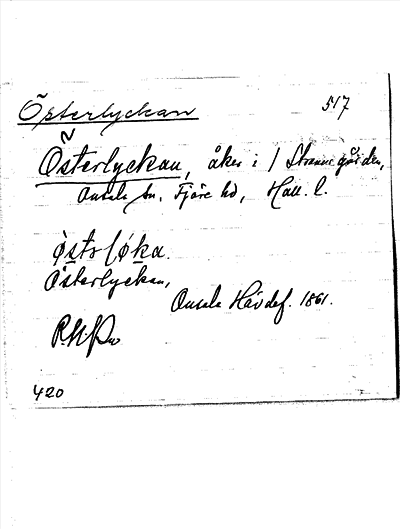 Österlyckan 517
Österlyckan, åker i / Strannegården,
Onsala sn. Fjäre hd, Hall. l.
Österlyckan,
Onsala Hävdef. 1861.
420